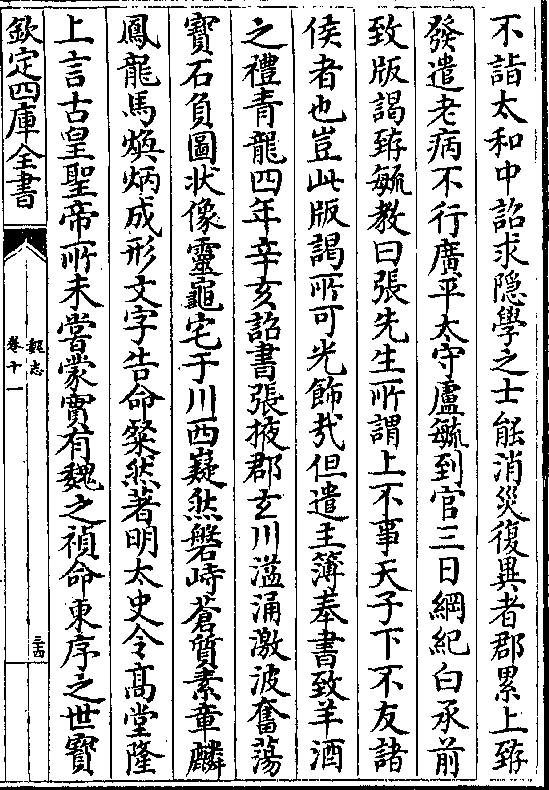 不詣太和中詔求隠學之士能消災復異者郡累上臶
發遣老病不行廣平太守盧毓到官三日綱紀白承前
致版謁臶毓教曰張先生所謂上不事天子下不友諸
侯者也豈此版謁所可光飾哉但遣主簿奉書致羊酒
之禮青龍四年辛亥詔書張掖郡玄川溢涌激波奮蕩
寳石負圖状像靈龜宅于川西嶷然磐峙蒼質素章麟
鳳龍馬煥炳成形文字告命粲然著明太史令髙堂隆
上言古皇聖帝所未嘗蒙實有魏之禎命東序之世寳
欽定四庫全書
魏志
卷十一
三四